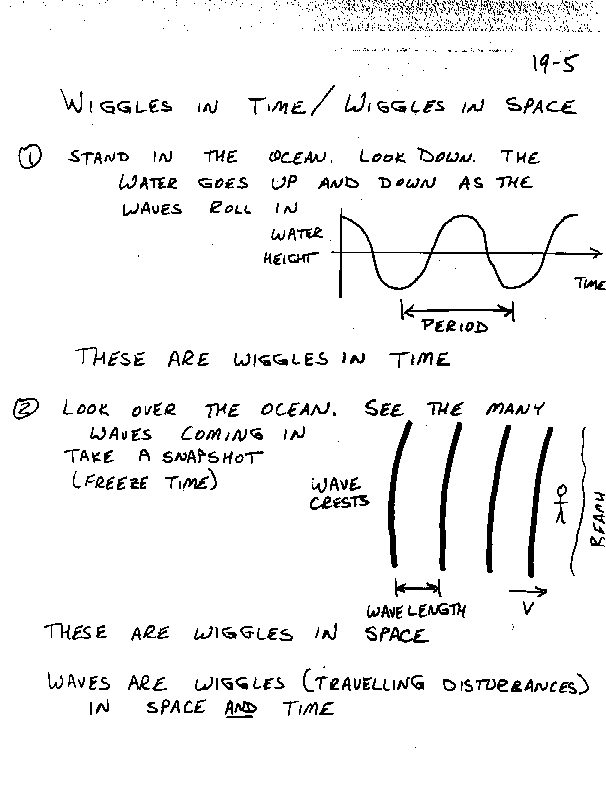 19-5
WIGGLES IN TIME/WIGGLES IN SPACE
① STAND IN THE OCEAN. LOOK DOWN. THE
WATER GOES UP AND DOWN AS THE
WAVES ROLL IN
WATER
HEIGHT
TIME
PERIOD
THESE ARE WIGGLES IN TIME
② LOOK OVER THE OCEAN. SEE THE MANY
WAVES COMING IN
TAKE A SNAPSHOT
(FREEZE TIME)
WAVE
CRESTS
BEACH
WAVELENGTH
V
THESE ARE WIGGLES IN SPACE
WAVES ARE WIGGLES (TRAVELLING DISTURBANCES)
IN SPACE AND TIME